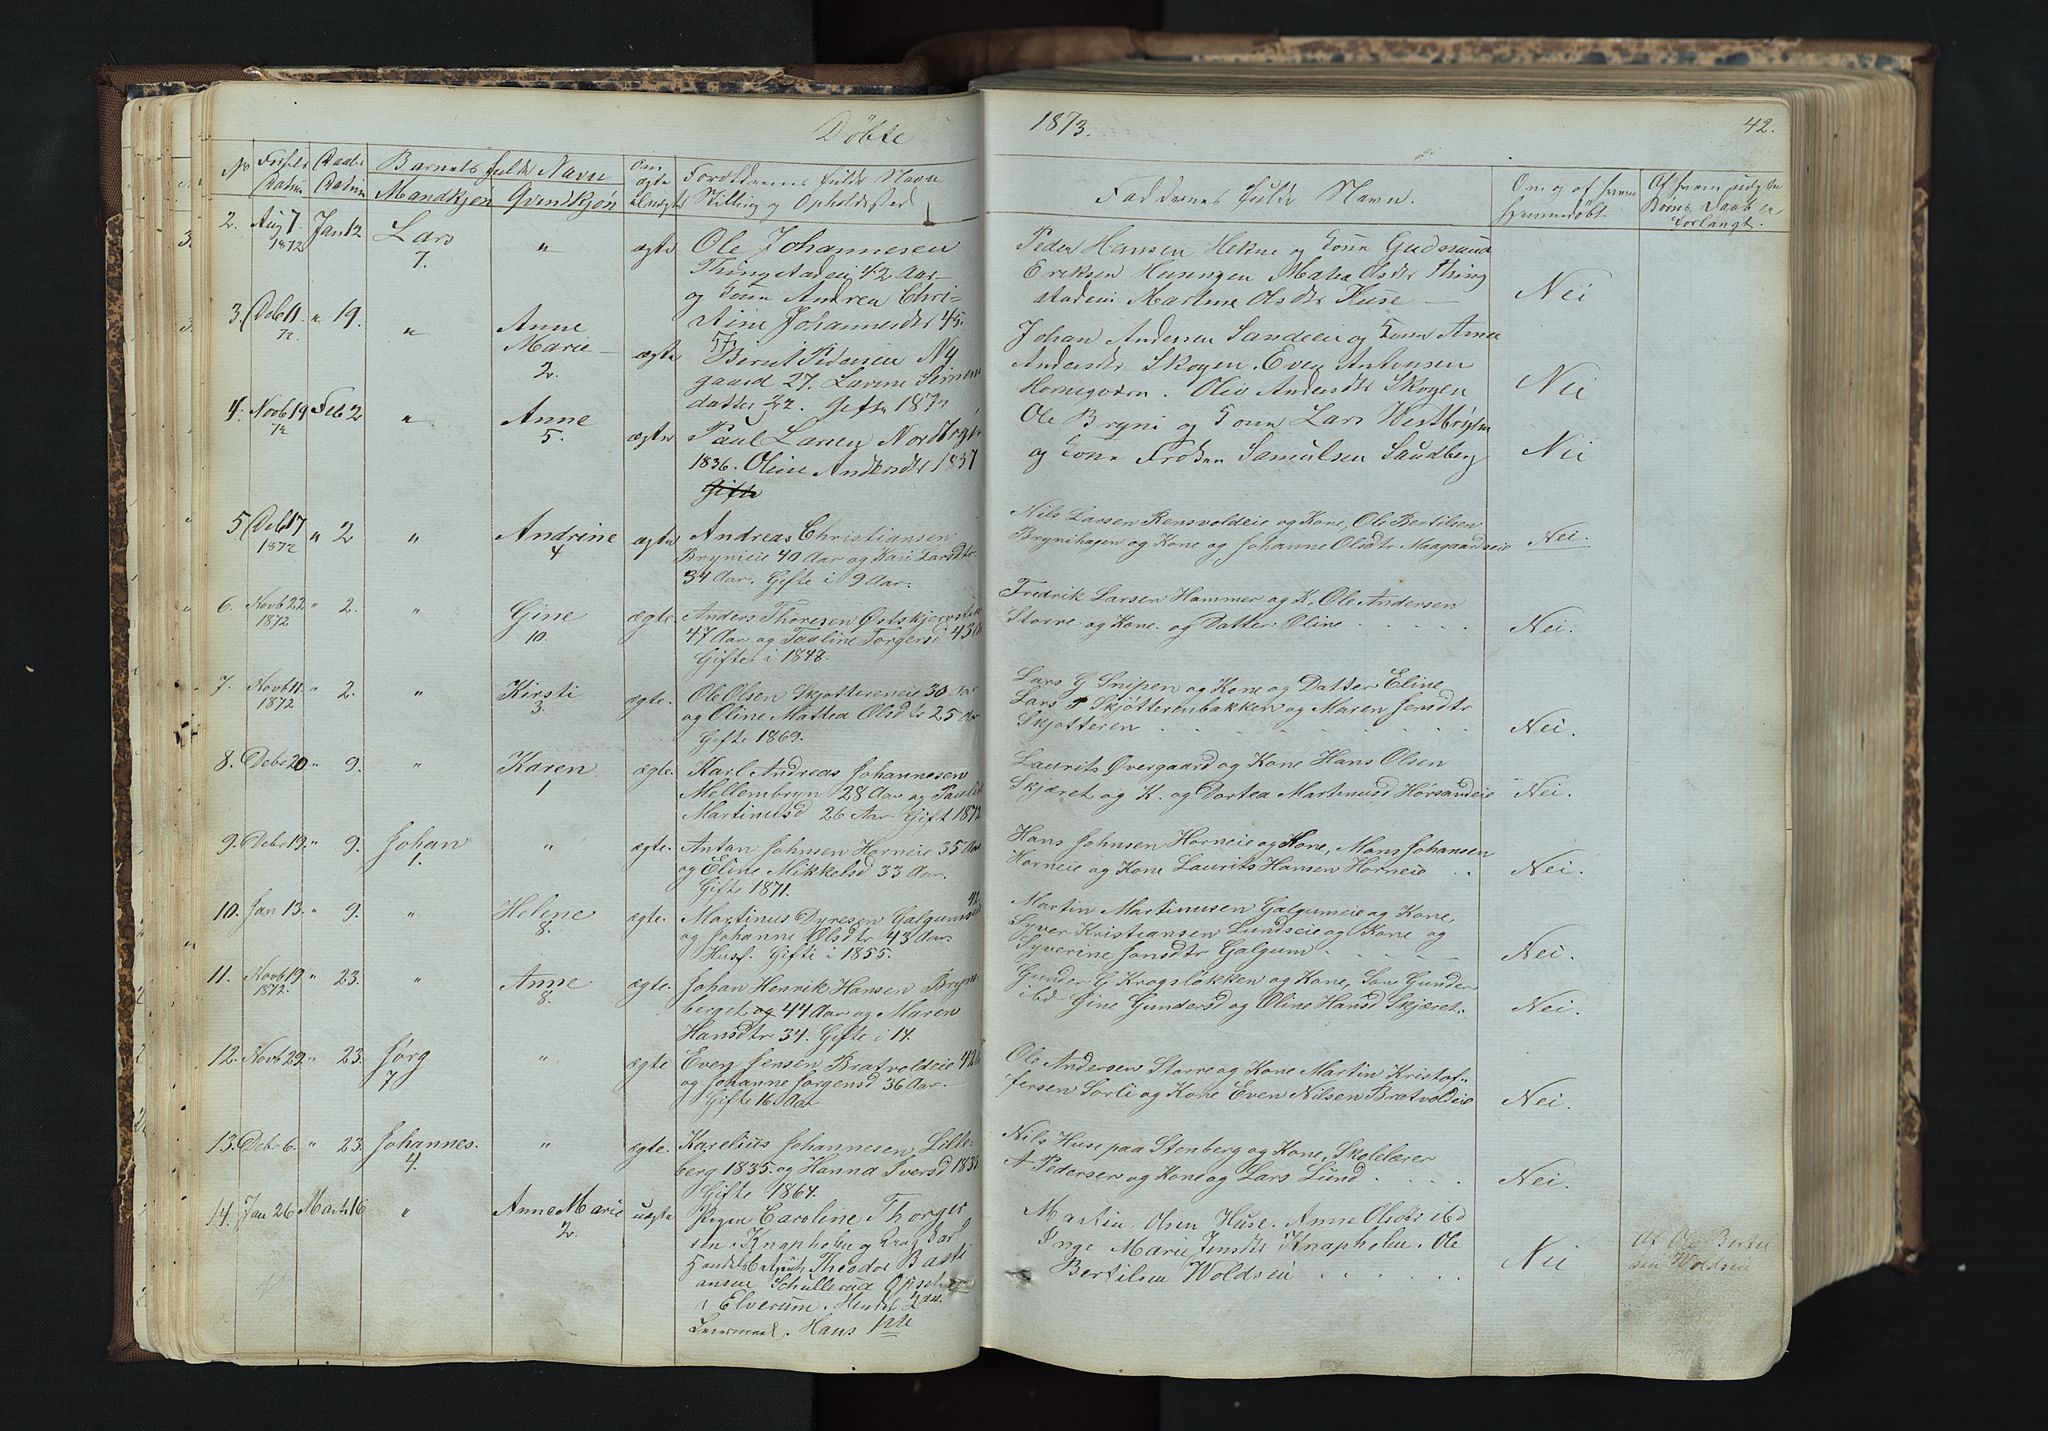 Døbte
1873.
42.
No
Fødsels Datum
Daabs Datum
Barnets fulde Navn
Mandkjøn
Qvindkjøn
Om ægte el uægte
Forældrenes fulde Navn
Stilling og Opholdssted
Faddernes fulde Navn.
Om og af hvem
Hjemmedøbt.
Af hvem udøbte
Børns Daab er
forlangt.
2. Aug 7. 1872 Jan 12 Lars 7. " ægte
Ole Johannesen
Thingstadeie 42 Aar
og Kone Andrea Chri-
stine Johannesdtr 45.
Peder Hansen Hekne og Kone Gudmund
Eriksen Husengen Mathea Olsdtr Thing
stadeie Martine Olsdtr Huse
Nei
3. Deb 11. 72 " 19. " Anne Marie 2. ægte
Bernt Pedersen Ny
gaard 27. Lavine Simens
datter 22. Gifte 1872
Johan Andersen Sandeie og Kone Anne
Andersdtr Skogen. Even Antonsen
Hornegoden. Olia Andersdtr Skogen
Nei
4. Novb 19 72 Feb 2 " Anne 5. ægte
Paul Larsen Nordbryn
1836. Oline Andersdtr 1837
Gifte
Ole Bryni og Kone Lars Westbryhn
og Kone Frøken Samulsen Sandberg
Nei
5 Deb 17 1872 " 2 " Andrine 4 ægte
Andreas Christiansen
Brynieie 40 Aar og Kari Larsdtr
34 Aar. Gifte i 9 Aar.
Nils Larsen Rensvoldeie og Kone, Ole Bertilsen
Brynihagen og Kone og Johanne Olsdtr Maagaardseie
Nei.
6. Novb 22 1872 " 2. " Gine 10. ægte.
Anders Thoresen Østskjørsten
47 Aar og Tadline Torgersd 43 Aar
Gifte i 1848.
Fredrik Larsen Hammer og K, Ole Andersen
Storre og Kone og Datter Oline
Nei.
7. Novb 11. 1872 " 2. " Kirsti 3. ægte.
Ole Olsen Skjøttereneie 30 Aar
og Oline Mattea Olsdtr 25 Aar
Gifte 1869.
Lars G Snipen og Kone og Datter Eline
Lars P Skjøtterenbakken og Maren Jensdtr
Skjøtteren
Nei.
8. Debr 20 " 9. " Karen 1 ægte.
Karl Andreas Johannesen
Mellembryn 28 Aar og Pauline
Martinusd 26 Aar Gift 1872
Laurits Øvergaard og Kone Hans Olsen
Skjæret og K. og Dortea Martinusd Horsandeie
Nei.
9. Debr 19. " 9. Johan 1. " ægte.
Antan Johnsen Horneie 35 Aar
og Eline Mikkelsd 33 Aar.
Gifte 1871.
Hans Johnsen Horneie og Kone, Mons Johansen
Horneie og Kone Laurits Hansen Horneie
Nei.
10. Jan 13. " 9. " Helene 8. ægte.
Martinus Dyresen Galgumseie 42
og Johanne Olsdtr 43 Aar.
Husf. Gifte i 1855.
Martin Martinusen Galgumeie og Kone,
Syver Kristiansen Lundseie og Kone og
Syverine Jonsdtr Galgum
Nei.
11. Novb 19 1872. " 23. " Anne 8. ægte.
Johan Henrik Hansen Bryn
berget og 44 Aar og Maren
Hansdtr 34. Gifte i 14.
Gunder G Krogsløkken og Kone, Søn Gunder
ibd Gine Gundersd og Oline Hansd Skjæret.
Nei.
12. Novb 29. " 23. Jørg 7 " ægte
Even Jensen Bratvoldeie 42
og Johanne Jørgensd 36 Aar.
Gifte 16 Aar
Ole Andersen Storre og Kone Martin Kristof-
fersen Sorli og Kone Even Nilsen Brætvoldeie
Nei.
13. Debr 6. " 23. Johannes. 4. " ægte.
Karelius Johannesen Lille-
berg 1835. og Hanna Iversd 1835
Gifte 1864.
Nils Huse paa Stenberg og Kone, Skolelærer
A Pedersen og Kone og Lars Lund
Nei.
14. Jan 26 Marts 16 " Anne Marie 2. uægte
Pigen Caroline Thorger
sen Knapholen og Ung Kar
Handelsbetjent Theodor Basti
ansen Schullerud Opset
i Elverum. Hendes 2den
Leiermaal. Hans 1ste
Martin Olsen Huse. Anne Olsdtr ibd
Inge Marie Jensdtr Knapholen. Ole
Bertilsen Woldseie
Nei
Af Ole Bertel
sen Woldseie